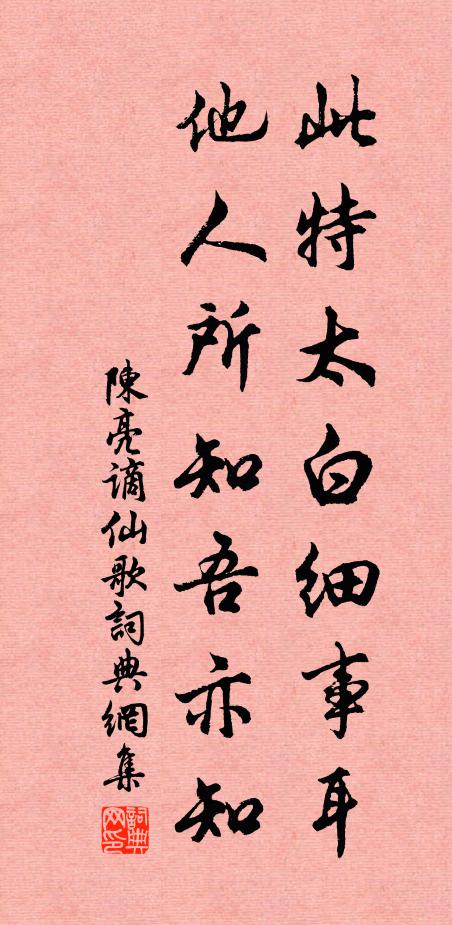 此特太白細事耳
他人所知吾亦知
陳亮謫仙歌詞典網集
詞典网印